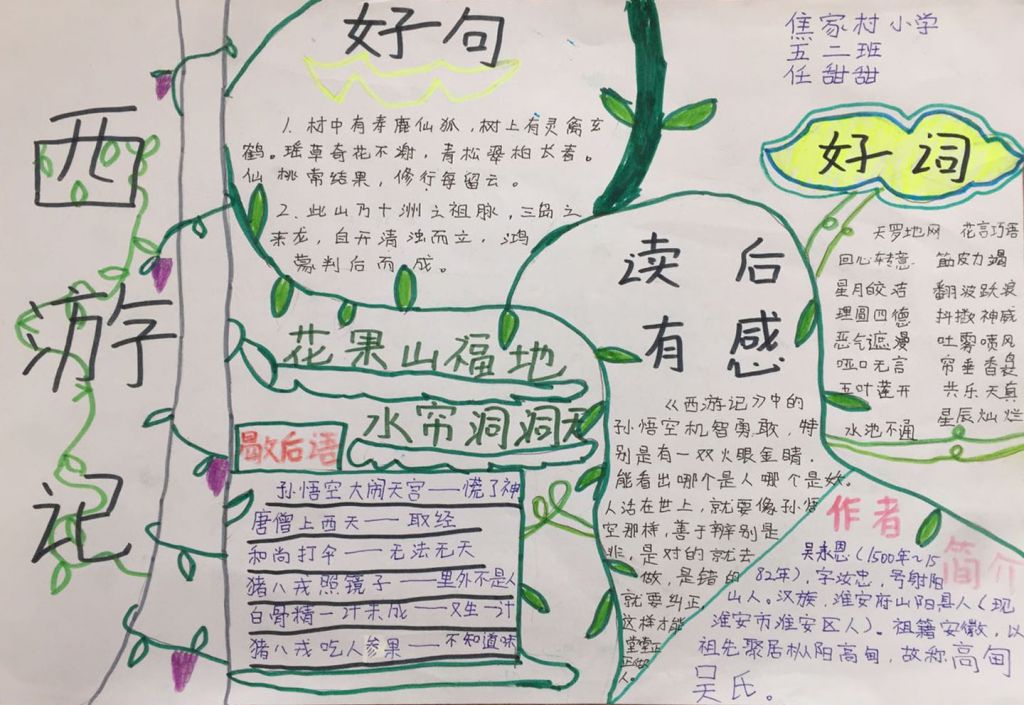 西游记
好句
1. 村中有寿鹿仙狐，树上有灵禽玄
鹤。瑶草奇花不谢，青松翠柏长春。
仙桃常结果，修行每留云。
2. 此山乃十洲之祖脉，三岛之
来龙，自开清浊而立，鸿
蒙判后而成。
花果山福地
水帘洞洞天
歇后语
孙悟空大闹天宫——慌了神
唐僧上西天——取经
和尚打伞——无法无天
猪八戒照镜子——里外不是人
白骨精一计未成——又生一计
猪八戒吃人参果——不知道味
读后
有感
《西游记》中的
孙悟空机智勇敢，特
别是有一双火眼金睛。
能看出哪个是人哪个是妖。
人活在世上，就要像孙悟
空那样，善于辨别是
非，是对的就去
做，是错的
就要纠正，
这样才能
堂堂正
正做
人。
焦家村小学
五二班
任甜甜
好词
天罗地网 花言巧语
回心转意 筋皮力竭
星月皎洁 翻波跃浪
理圆四德 抖擞神威
恶气遮漫 吐雾喷风
哑口无言 帘垂香袅
五叶莲开 共乐天真
水池不通 星辰灿烂
作者
简介
吴承恩（1500年~15
82年），字汝忠，号射阳
山人。汉族，淮安府山阳县人（现
淮安市淮安区人）。祖籍安徽，以
祖先聚居枞阳高甸，故称高甸
吴氏。